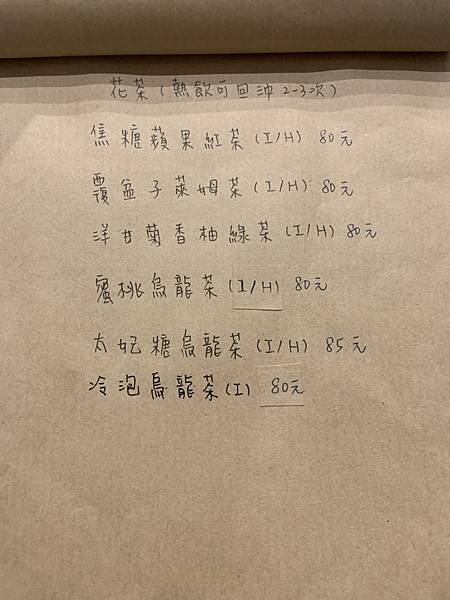 花茶(熱飲可回沖2-3次)
焦糖蘋果紅茶(I/H) 80元
覆盆子萊姆茶(I/H) 80元
洋甘菊香柚綠茶(I/H) 80元
蜜桃烏龍茶(I/H) 80元
太妃糖烏龍茶(I/H) 85元
冷泡烏龍茶(I) 80元